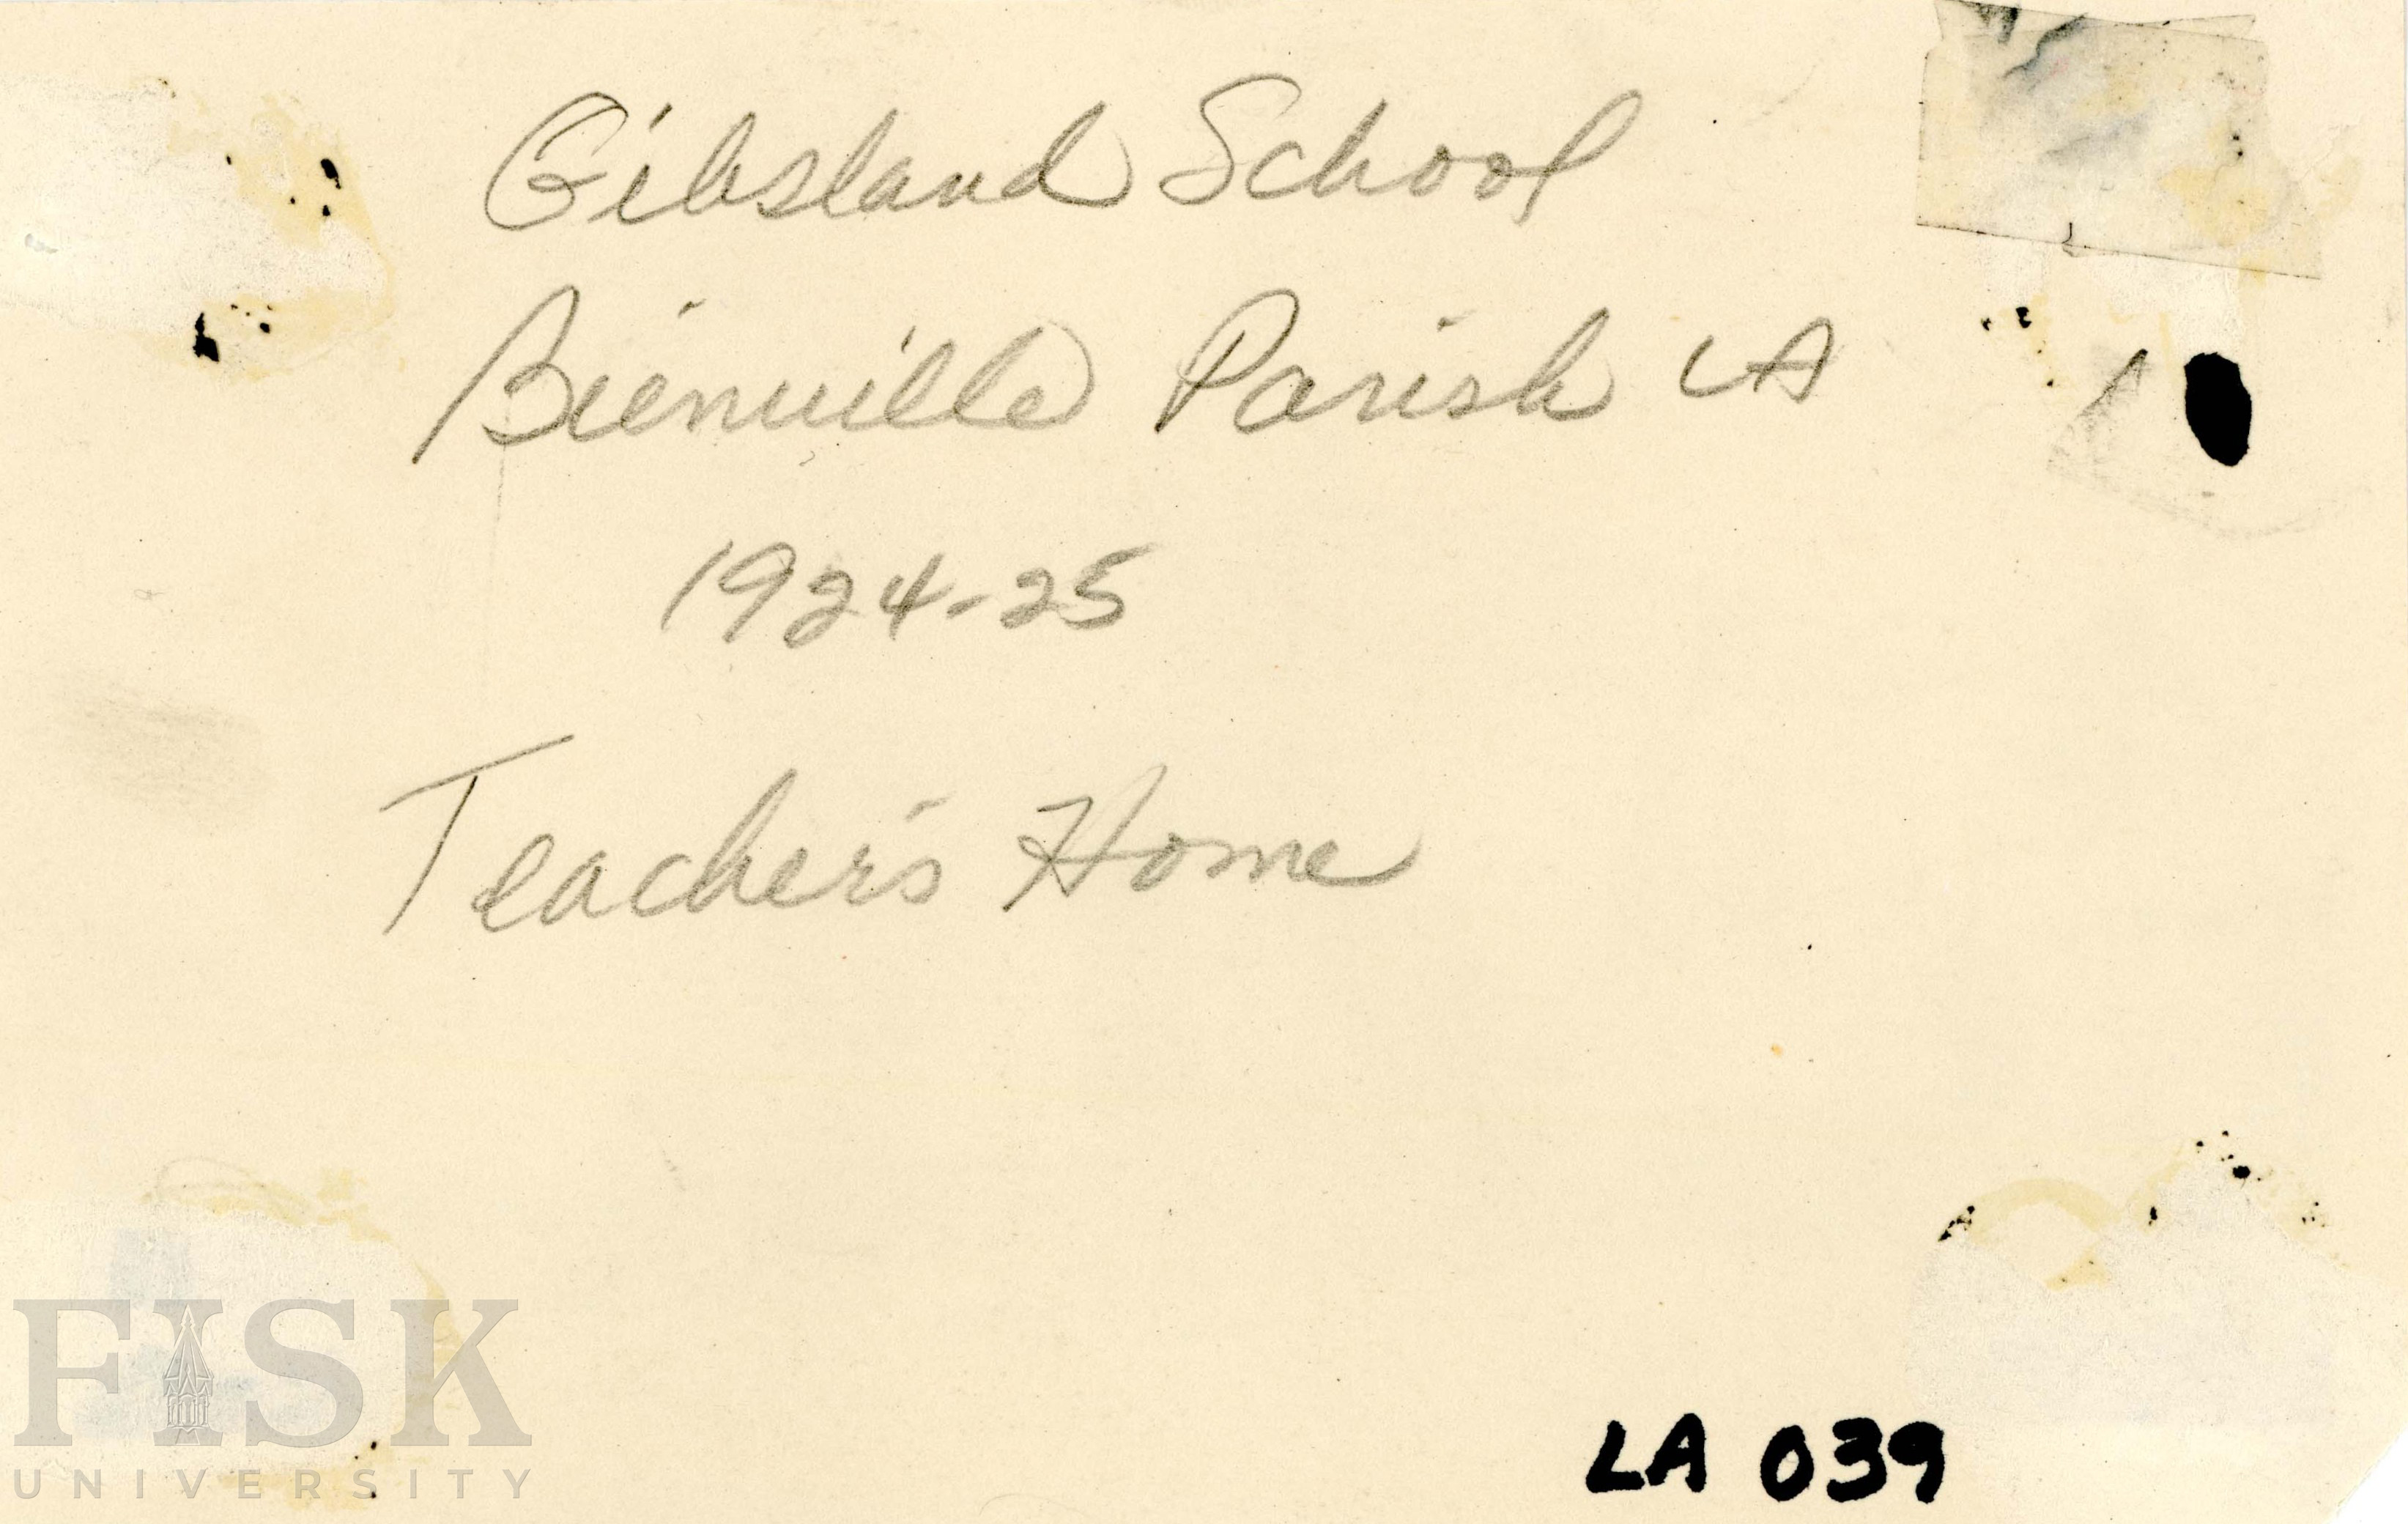 Gibsland School
Bienville Parish LA
1924-25
Teacher's Home
LA 039
FISK
UNIVERSITY